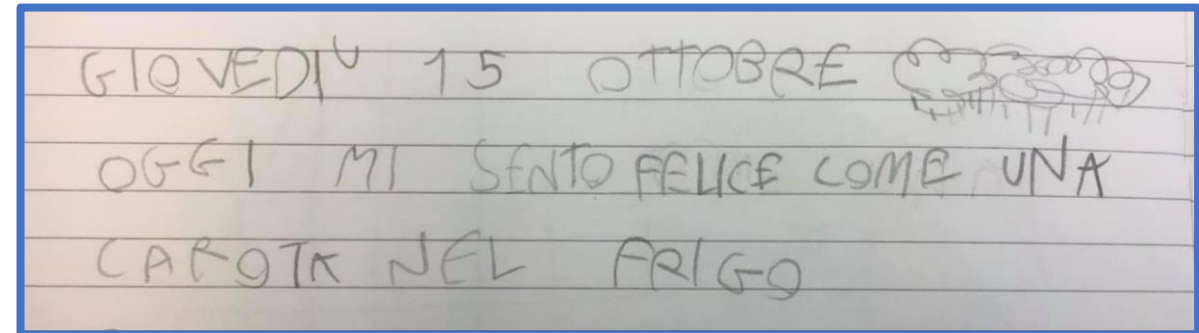 GIOVEDI' 15 OTTOBRE
OGGI MI SENTO FELICE COME UNA
CAROTA NEL FRIGO